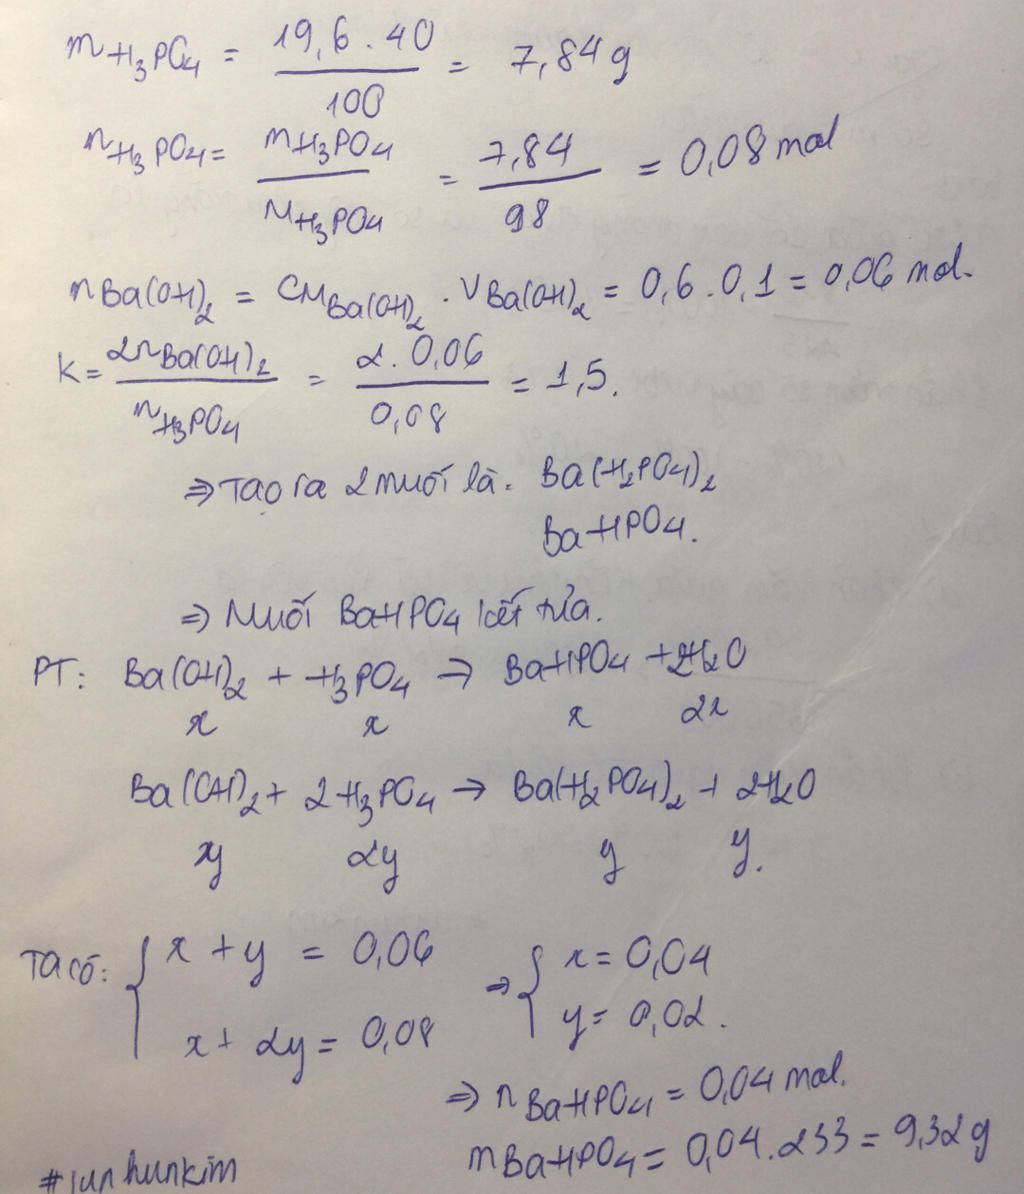 mH₃PO₄ = 19,6 . 40 / 100 = 7,84g
nH₃PO₄ = mH₃PO₄ / MH₃PO₄ = 7,84 / 98 = 0,08 mol
nBa(OH)₂ = CMBa(OH)₂ . VBa(OH)₂ = 0,6 . 0,1 = 0,06 mol.
K = 2nBa(OH)₂ / nH₃PO₄ = 2 . 0,06 / 0,08 = 1,5.
⇒ Tạo ra 2 muối là: Ba(H₂PO₄)₂
BaHPO₄.
⇒ Muối BaHPO₄ kết tủa.
PT: Ba(OH)₂ + H₃PO₄ → BaHPO₄ + 2H₂O
x x x 2x
Ba(OH)₂ + 2H₃PO₄ → Ba(H₂PO₄)₂ + 2H₂O
y 2y y y.
Ta có: { x + y = 0,06 ⇒ { x = 0,04
x + 2y = 0,08 y = 0,02.
⇒ nBaHPO₄ = 0,04 mol.
mBaHPO₄ = 0,04 . 233 = 9,32g